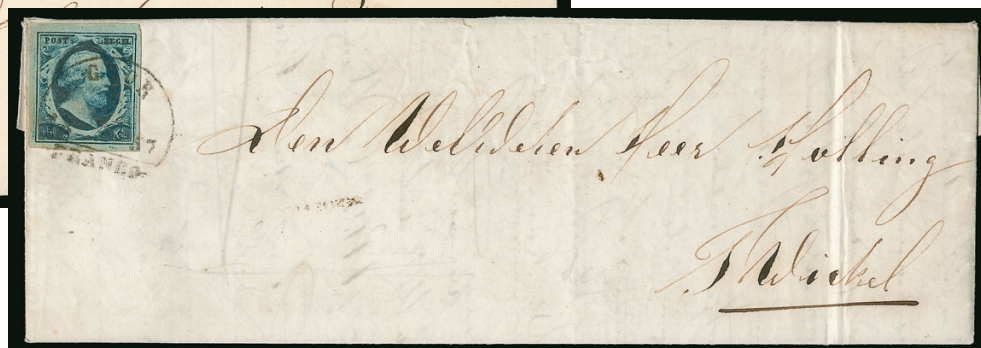 POST ZEGEL
FRANCO
Den WelEdelen Heer Holling
Twickel